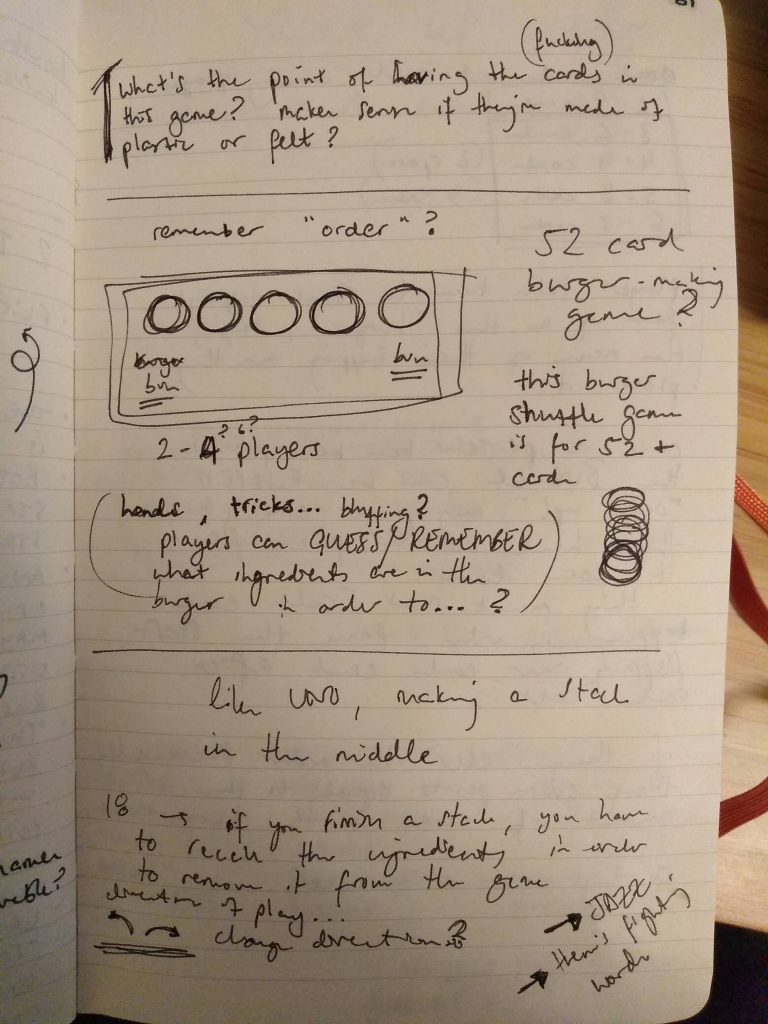 (fucking)
What's the point of having the cards in
this game? makes sense if they're made of
plastic or felt?
remember "order"?
52 card
burger-making
game?
bun
bun
2-4? 6? players
this burger
shuffle game
is for 52+
cards
hands, tricks... bluffing?
players can GUESS/REMEMBER
what ingredients are in the
burger in order to...?
like UNO, making a stack
in the middle
18 → if you finish a stack, you have
to recall the ingredients in order
to remove it from the game
direction of play...
change direction?
→ JAZZ
→ them's fighting
words
names